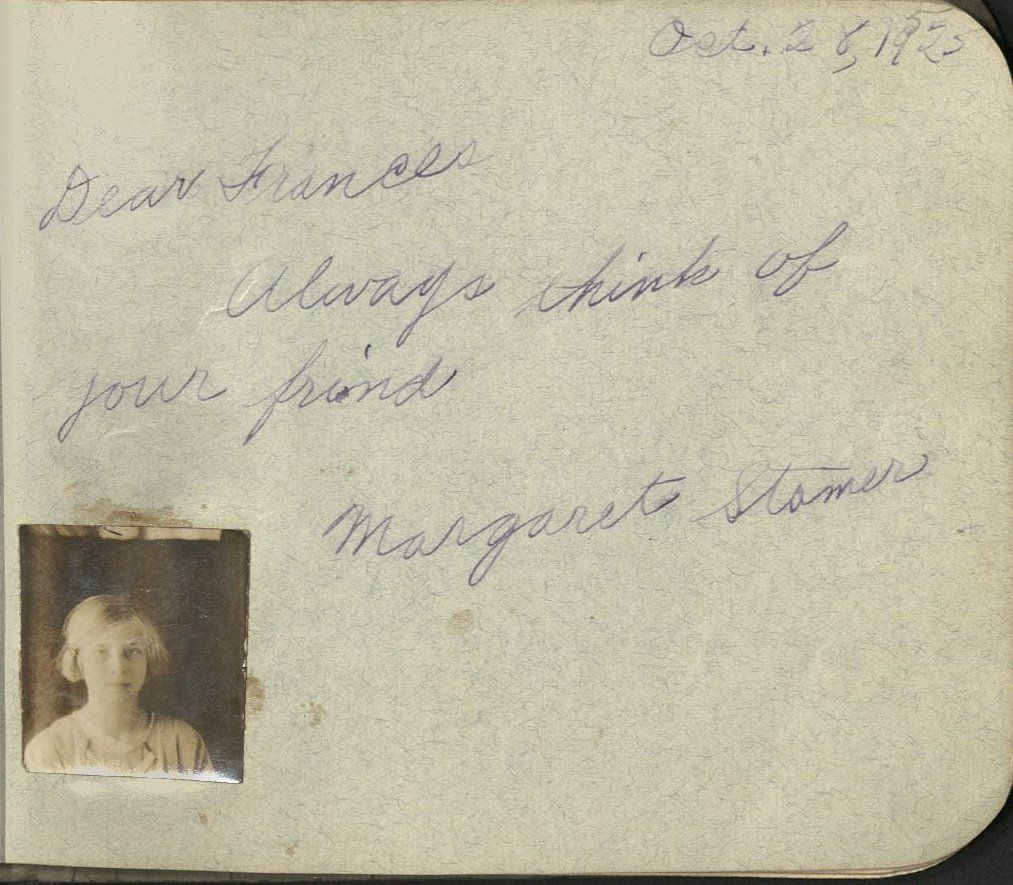 Oct. 28, 1925
Dear Frances
Always think of
your frind
Margaret Stamer